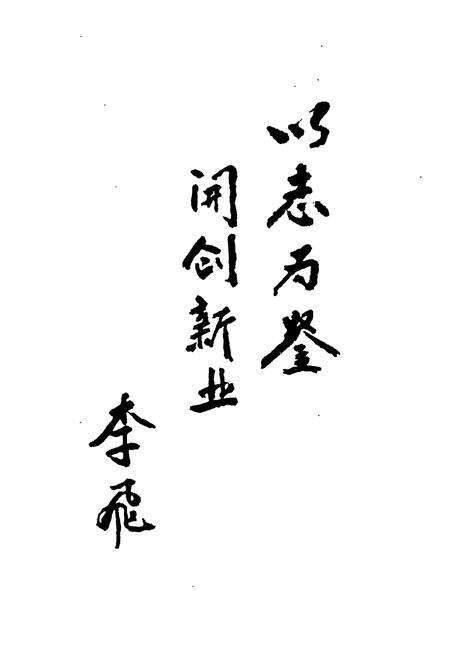 以志为鉴
开创新业
李飞